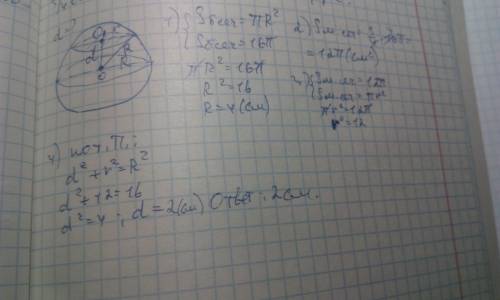 d-?
1) { Sб.сеч = πR²
Sб.сеч = 16π
πR² = 16π
R² = 16
R = 4 (см)
2) Sм.сеч = 3/4 · 16π =
= 12π (см²)
3) { Sм.сеч = 12π
Sм.сеч = πr²
πr² = 12π
r² = 12
4) по т. П.:
d² + r² = R²
d² + 12 = 16
d² = 4 ; d = 2 (см) Ответ: 2 см.